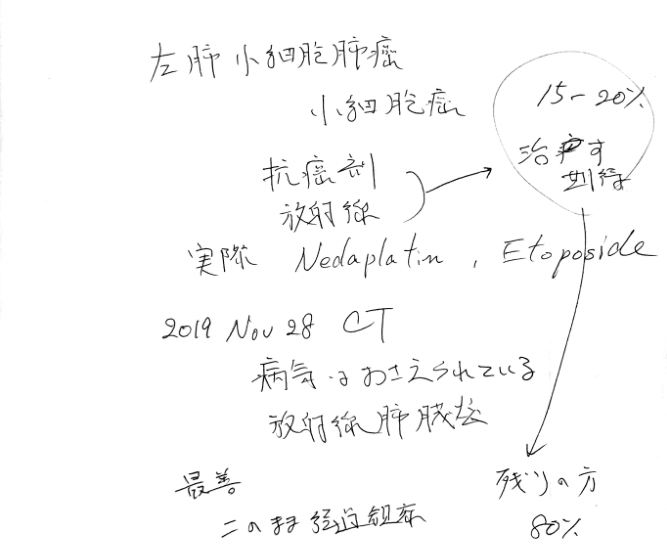 左肺小細胞肺癌
小細胞癌
15-20%
抗癌剤
治す
放射線
実際 Nedaplatin, Etoposide
2019 Nov 28 CT
病気はおさえられている
放射線肺臓炎
最善
このまま経過観察
残りの方
80%